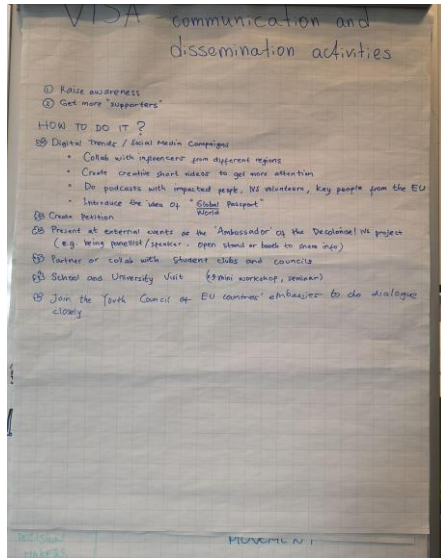 VISA communication and
dissemination activities
① Raise awareness
② Get more "supporters"
HOW TO DO IT ?
Digital Trends / Social Media Campaigns
• Collab with influencers from different regions
• Create creative short videos to get more attention
• Do podcasts with impacted people, NS volunteers, key people from the EU
• Introduce the idea of "Global Passport"
World
Create Petition
Present at external events as the 'Ambassador' of the Decolonise! NS project
(e.g. being panelist/speaker, open stand or booth to share info)
Partner or collab with student clubs and councils
School and University Visit (mini workshop, seminar)
Join the Youth Council of EU countries' embassies to do dialogue
closely
DECISION
MAKERS
MOVEMENT